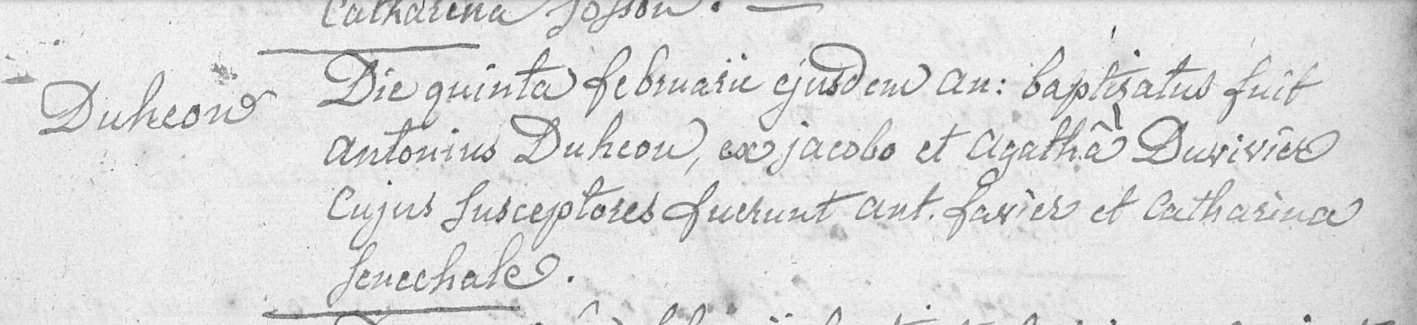 Catharina Josson.
Duheon
Die quinta februarii ejusdem an: baptizatus fuit
antonius Duheon, ex jacobo et agathâ Duvivier
Cujus susceptores fuerunt ant. favier et Catharina
senechale.